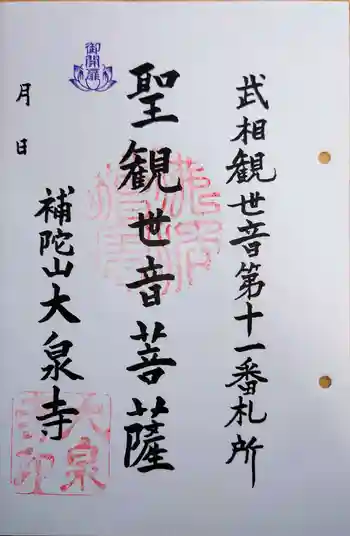 武相観世音第十一番札所
御開扉
聖観世音菩薩
月 日
補陀山大泉寺